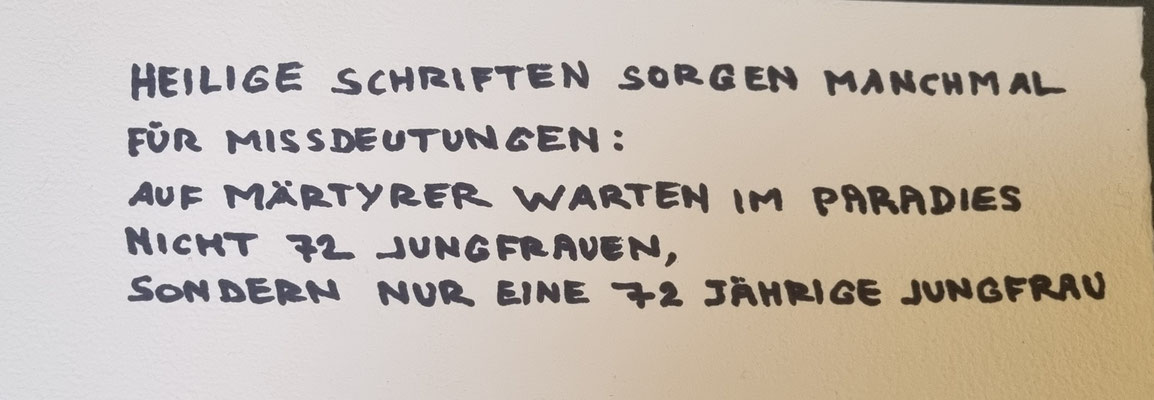 HEILIGE SCHRIFTEN SORGEN MANCHMAL
FÜR MISSDEUTUNGEN:
AUF MÄRTYRER WARTEN IM PARADIES
NICHT 72 JUNGFRAUEN,
SONDERN NUR EINE 72 JÄHRIGE JUNGFRAU